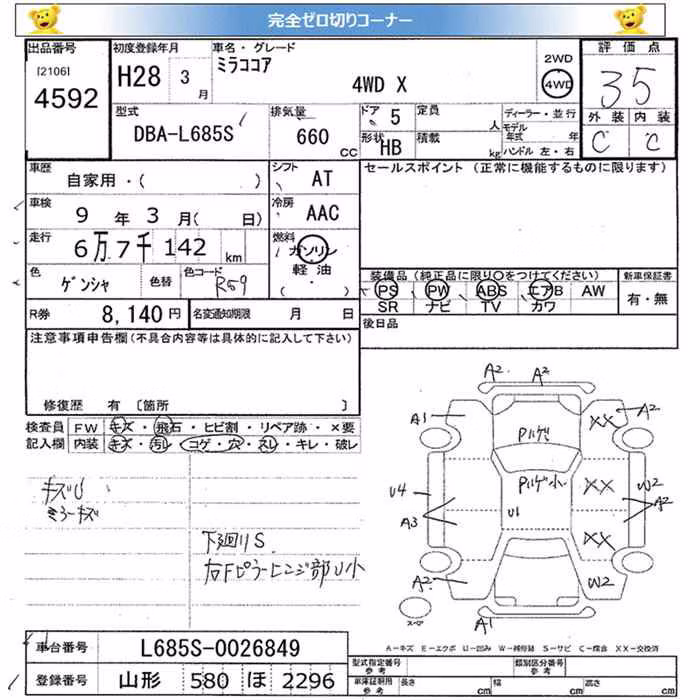 完全ゼロ切りコーナー
出品番号 初度登録年月 車名・グレード 評価点
[2106] 4592
H28 3月
ミラココア
4WD X
2WD
4WD
35
外装 内装
C C
型式 排気量 ドア 定員 ディーラー・並行
DBA-L685S 660 CC 5 人 モデル年式 年
形状 積載
HB kg ハンドル 左・右
車歴 シフト セールスポイント (正常に機能するものに限ります)
自家用・( ) AT
車検 冷房
9年 3月( 日) AAC
走行 燃料
6万7千142 km ガソリン
軽油
( ・ )
色 色替 色コード
ゲンシャ R59
装備品 (純正品に限り○をつけてください) 新車保証書
PS PW ABS エアB AW 有・無
SR ナビ TV カワ
R券 8,140円 名変通知期限 月 日
後日品
注意事項申告欄(不具合内容等は具体的に記入して下さい)
修復歴 有 〔箇所 〕
検査員 FW キズ・飛石・ヒビ割・リペア跡・×要
記入欄 内装 キズ・汚レ・コゲ・穴・スレ・キレ・破レ
キズU
ミラーキズ
下廻りS
右Fピラーヒンジ部U小
A2 A2
A1 XX A2
Pハゲ
U4 Pハゲ小 XX W2
A3 U1 A2
XX
A2 W2
A1
スペアー
A-キズ E-エクボ U-凹み W-補修跡 S-サビ C-腐食 XX-交換済
車台番号 L685S-0026849
登録番号 山形 580 ほ 2296
型式指定番号 参考 類別区分番号 参考
車庫証明用 参考 長さ cm 幅 cm 高さ cm